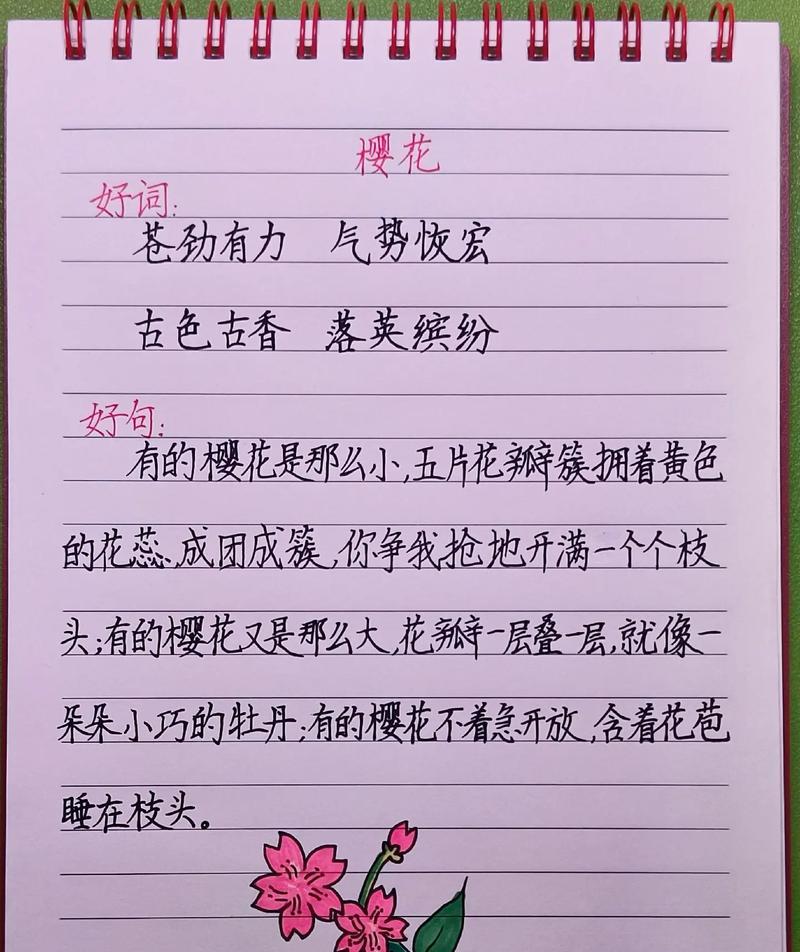 樱花
好词:
苍劲有力 气势恢宏
古色古香 落英缤纷
好句:
有的樱花是那么小,五片花瓣簇拥着黄色
的花蕊,成团成簇,你争我抢地开满一个个枝
头;有的樱花又是那么大,花瓣一层叠一层,就像一
朵朵小巧的牡丹;有的樱花不着急开放,含着花苞
睡在枝头。